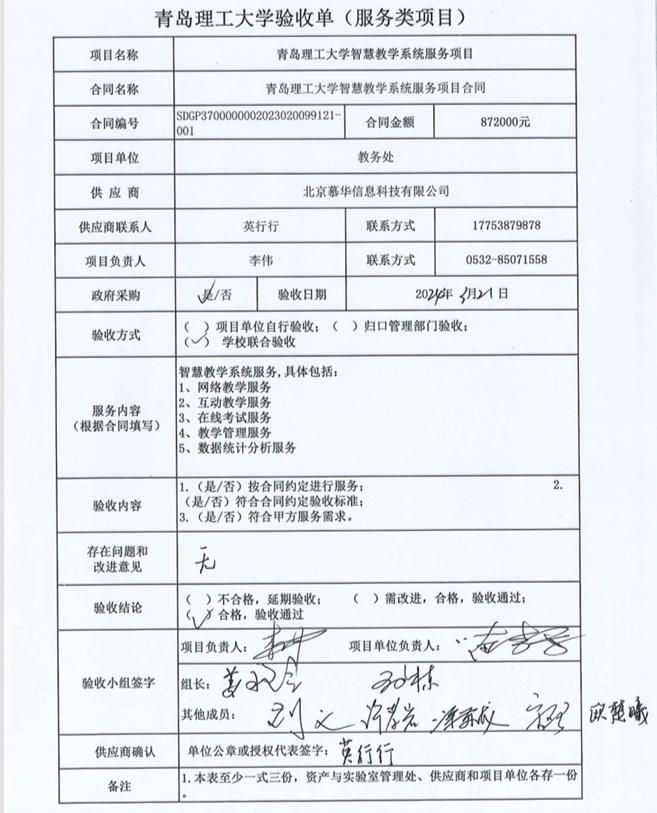 青岛理工大学验收单（服务类项目）
项目名称 青岛理工大学智慧教学系统服务项目
合同名称 青岛理工大学智慧教学系统服务项目合同
合同编号 SDGP3700000002023020099121-001 合同金额 872000元
项目单位 教务处
供 应 商 北京慕华信息科技有限公司
供应商联系人 英行行 联系方式 17753879878
项目负责人 李伟 联系方式 0532-85071558
政府采购 是/否 验收日期 2024年3月21日
验收方式 （ ）项目单位自行验收；（ ）归口管理部门验收；
（✓） 学校联合验收
服务内容
（根据合同填写）
智慧教学系统服务,具体包括：
1、网络教学服务
2、互动教学服务
3、在线考试服务
4、教学管理服务
5、数据统计分析服务
验收内容
1.（是/否）按合同约定进行服务； 2.
（是/否）符合合同约定验收标准；
3.（是/否）符合甲方服务需求。
存在问题和
改进意见
无
验收结论 （ ）不合格，延期验收； （ ）需改进，合格，验收通过；
（✓）合格，验收通过
验收小组签字
项目负责人： 项目单位负责人：
组长： 孙栋
其他成员： 刘文 欧楚曦
供应商确认 单位公章或授权代表签字：英行行
备注 1.本表至少一式三份，资产与实验室管理处、供应商和项目单位各存一份
。